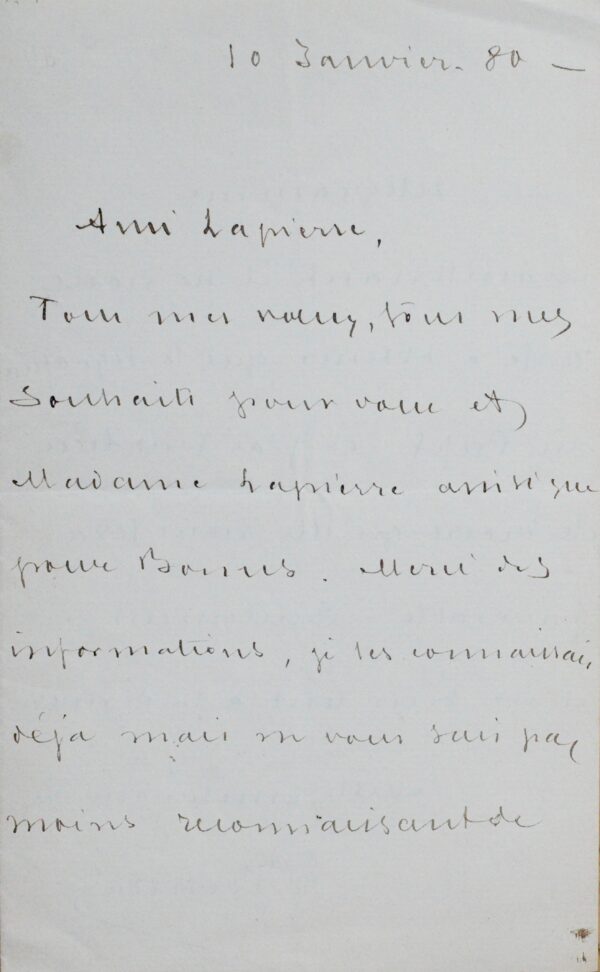 10 Janvier. 80 —
Ami Lapierre,
Tous mes vœux, tous mes
souhaits pour vous et
Madame Lapierre ainsi que
pour . Merci des
informations, je les connaissais
déja mais ne vous suis pas
moins reconnaissant de